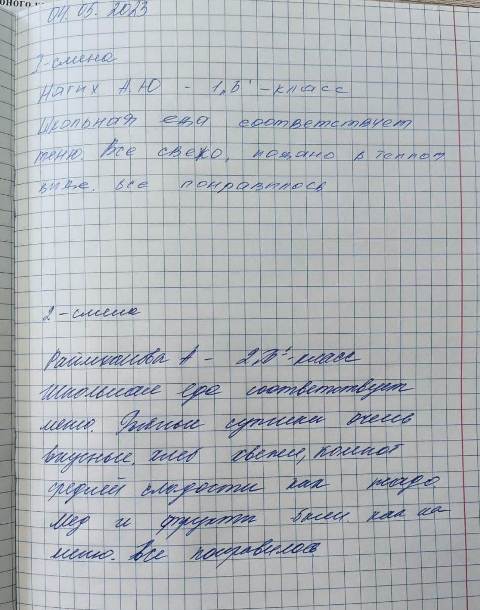 04.05.2023
1-смена
Нагих А.Ю - 1„Б"-класс
Школьная еда соответствует
меню. Все свежо, подано в теплом
виде. все понравилось
2-смена
А - 2„В"-класс
Школьная еда соответствует
меню. супчики очень
вкусные, хлеб свежий, компот
средней сладости как надо.
Мед и фрукты были как на
меню. Все понравилось